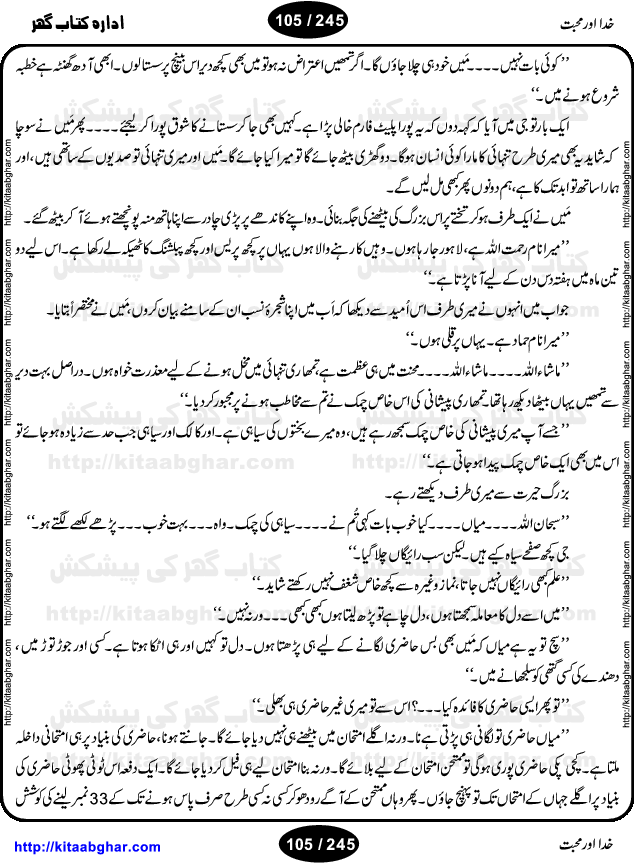 خدا اور محبت
105 / 245
ادارہ کتاب گھر
’’کوئی بات نہیں۔۔۔۔مَیں خود ہی چلا جاؤں گا۔ اگر تمھیں اعتراض نہ ہو تو میں بھی کچھ دیر اس بینچ پر سستا لوں۔ ابھی آدھ گھنٹہ ہے خطبہ
شروع ہونے میں۔‘‘
ایک بار تو جی میں آیا کہ کہہ دوں کہ یہ پورا پلیٹ فارم خالی پڑا ہے۔ کہیں بھی جا کر سستانے کا شوق پورا کر لیجئے۔۔۔۔پھر مَیں نے سوچا
کہ شاید یہ بھی میری طرح تنہائی کا مارا کوئی انسان ہوگا۔ دو گھڑی بیٹھ جائے گا تو میرا کیا جائے گا۔ مَیں اور میری تنہائی تو صدیوں کے ساتھی ہیں، اور
ہمارا ساتھ تو ابد تک کا ہے، ہم دونوں پھر کبھی مل لیں گے۔
مَیں نے ایک طرف ہو کر تختے پر اس بزرگ کی بیٹھنے کی جگہ بنائی۔ وہ اپنے کاندھے پر پڑی چادر سے اپنا ہاتھ منہ پونچھتے ہوئے آ کر بیٹھ گئے۔
’’میرا نام رحمت اللہ ہے، لاہور جا رہا ہوں۔ وہیں کا رہنے والا ہوں یہاں پر کچھ پریس اور کچھ پبلشنگ کا ٹھیکہ لے رکھا ہے۔ اس لیے دو
تین ماہ میں ہفتہ دس دن کے لیے آنا پڑتا ہے۔‘‘
جواب میں انہوں نے میری طرف اس اُمید سے دیکھا کہ اَب میں اپنا شجرۂ نسب ان کے سامنے بیان کروں، مَیں نے مختصراً بتایا۔
’’میرا نام حماد ہے۔ یہاں پر قلی ہوں۔‘‘
’’ماشاءاللہ۔۔۔۔ماشاءاللہ۔۔۔۔محنت میں ہی عظمت ہے، تمھاری تنہائی میں مخل ہونے کے لیے معذرت خواہ ہوں۔ دراصل بہت دیر
سے تمھیں یہاں بیٹھا دیکھ رہا تھا، تمھاری پیشانی کی اس خاص چمک نے تم سے مخاطب ہونے پر مجبور کر دیا۔‘‘
’’جسے آپ میری پیشانی کی خاص چمک سمجھ رہے ہیں، وہ میرے بختوں کی سیاہی ہے۔ اور کالک اور سیاہی جب حد سے زیادہ ہو جائے تو
اس میں بھی ایک خاص چمک پیدا ہو جاتی ہے۔‘‘
بزرگ حیرت سے میری طرف دیکھتے رہے۔
’’سبحان اللہ۔۔۔۔میاں۔۔۔۔کیا خوب بات کہی تُم نے۔۔۔۔سیاہی کی چمک۔ واہ۔۔۔بہت خوب۔۔۔پڑھے لکھے لگتے ہو۔‘‘
جی کچھ صفحے سیاہ کیے ہیں۔ لیکن سب رائیگاں چلا گیا۔‘‘
’’علم کبھی رائیگاں نہیں جاتا، نماز وغیرہ سے کچھ خاص شغف نہیں رکھتے شاید۔‘‘
’’میں اسے دل کا معاملہ سمجھتا ہوں، دل چاہے تو پڑھ لیتا ہوں کبھی کبھی۔۔۔ورنہ نہیں۔‘‘
’’سچ تو یہ ہے میاں کہ مَیں بھی بس حاضری لگانے کے لیے ہی پڑھتا ہوں۔ دل تو کہیں اور ہی اٹکا ہوتا ہے۔ کسی اور جوڑ توڑ میں،
دھندے کی کسی گتھی کو سلجھانے میں۔‘‘
’’تو پھر ایسی حاضری کا فائدہ کیا۔۔۔؟ اس سے تو میری غیر حاضری ہی بھلی۔‘‘
’’میاں حاضری تو لگانی ہی پڑتی ہے نا۔ ورنہ اگلے امتحان میں بیٹھنے ہی نہیں دیا جائے گا۔ جانتے ہو نا، حاضری کی بنیاد پر ہی امتحانی داخلہ
ملتا ہے۔ کچی پکی حاضری پوری ہوئی تو ممتحن امتحان کے لیے بلائے گا۔ ورنہ بنا امتحان لیے ہی فیل کر دیا جائے گا۔ ایک دفعہ اس ٹوٹی پھوٹی حاضری کی
بنیاد پر اگلے جہاں کے امتحان تک تو پہنچ جاؤں۔ پھر وہاں ممتحن کے آگے رو دھو کر کسی نہ کسی طرح صرف پاس ہونے تک کے 33 نمبر لینے کی کوشش
کتاب گھر کی پیشکش
http://kitaabghar.com
http://kitaabghar.com
105 / 245
خدا اور محبت